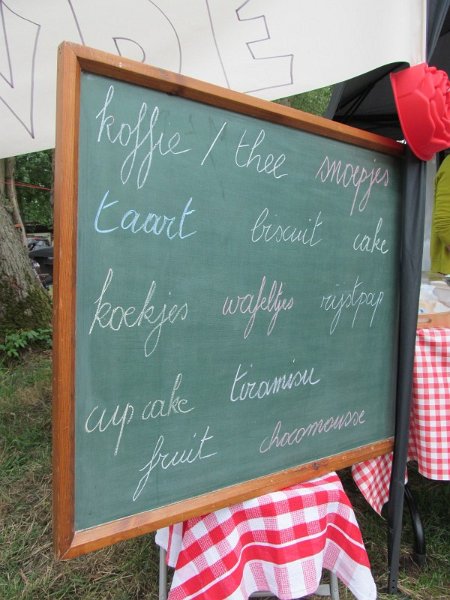 koffie / thee snoepjes
taart biscuit cake
koekjes wafeltjes rijstpap
cupcake tiramisu
fruit chocomousse